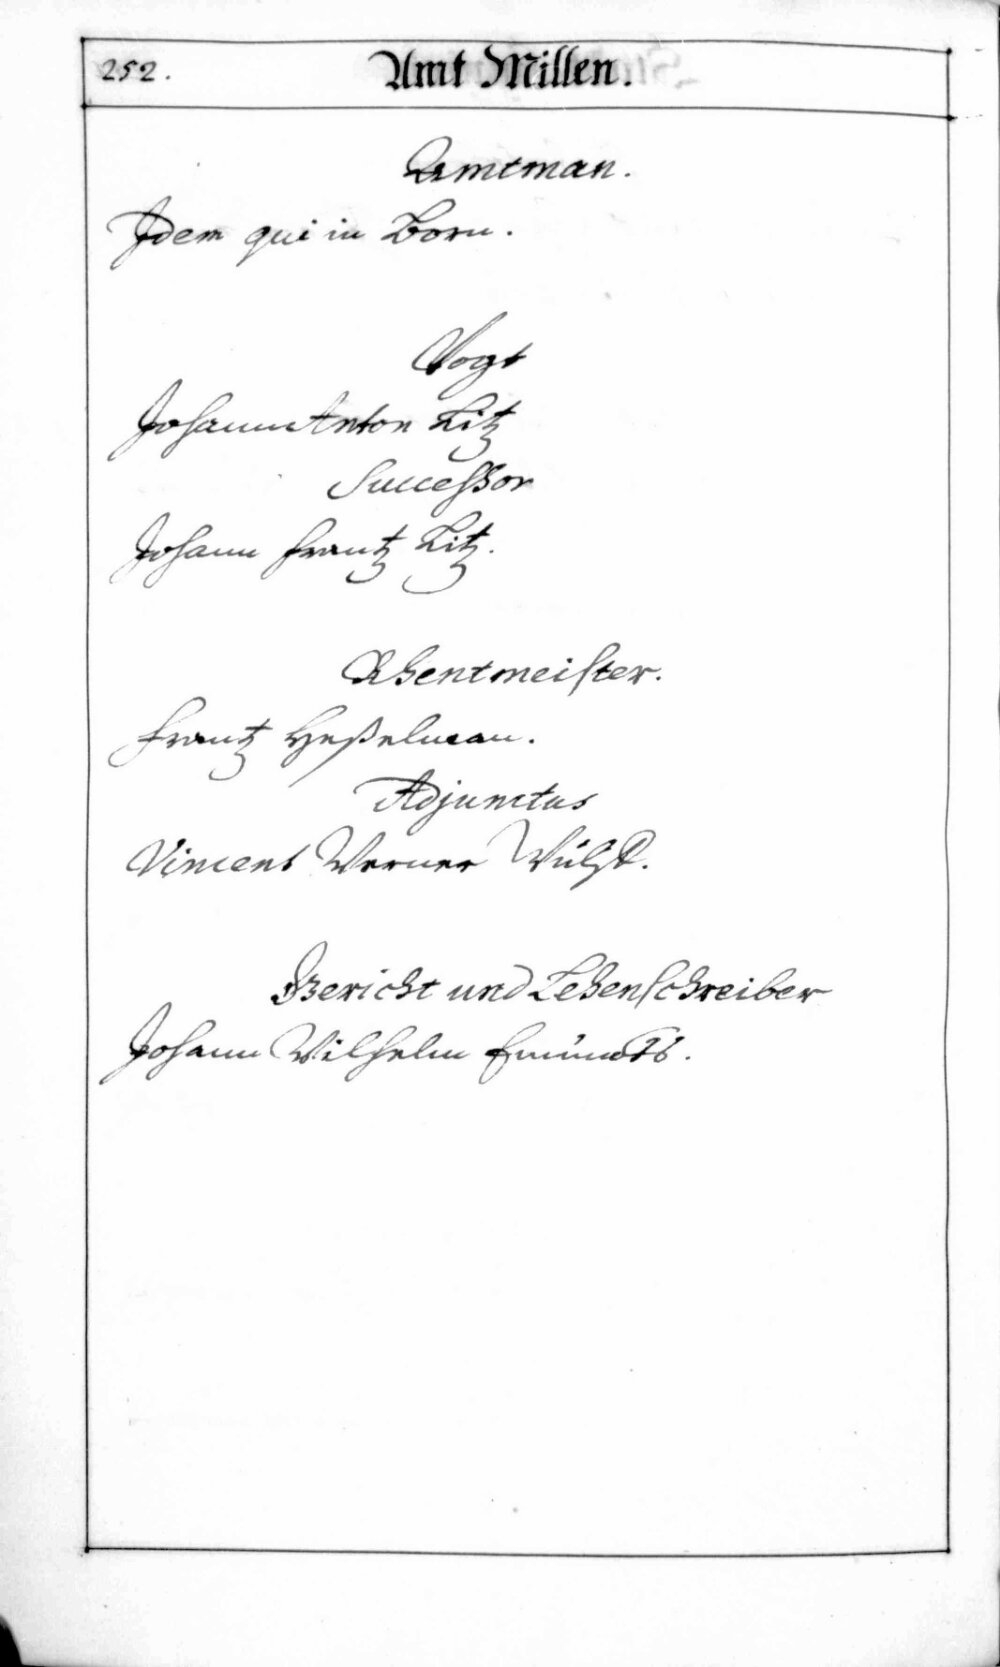 252.
Amt Millen.
Amtman.
Idem qui in Born.
Vogt
Johann Anton Litz
Successor
Johann Frantz Litz.
Rhentmeister.
Frantz Heßelman.
Adjunctus
Vincent Werner
Gericht und Lehenschreiber
Johann Wilhelm Emündts.